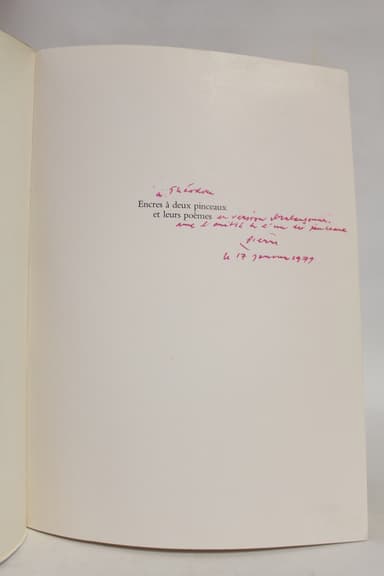 à Théodore
Encres à deux pinceaux
et leurs poèmes en version
avec l'amitié de l'un des pinceaux
Pierre
le 17 janvier 1979